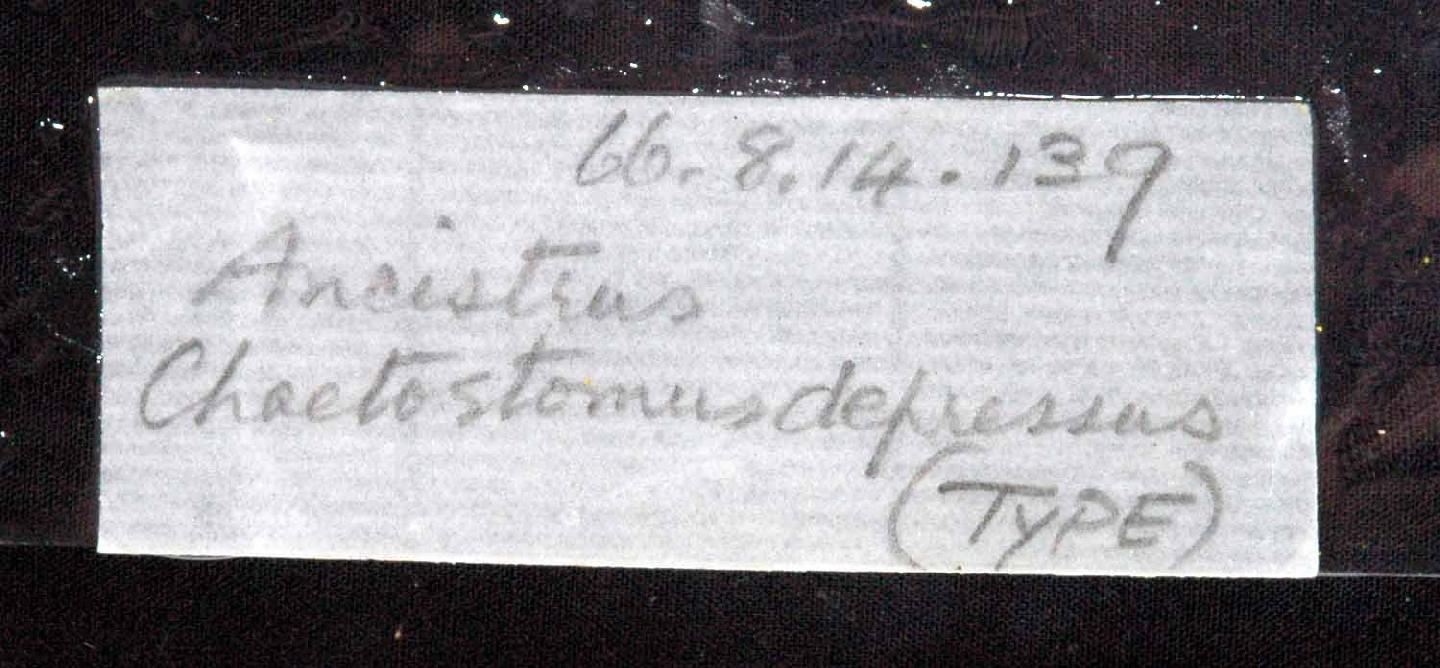 66.8.14.139
Ancistrus
Chaetostomus depressus
(TYPE)